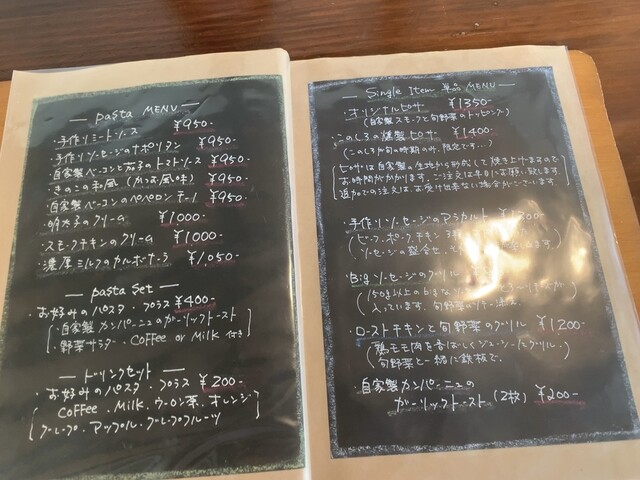 pasta MENU
・手作りミートソース ¥950-
・手作りソーセージのナポリタン ¥950-
・自家製ベーコンと茄子のトマトソース ¥950-
・きのこの和風 (かつお風味) ¥950-
・自家製ベーコンのペペロンチーノ ¥950-
・明太子のクリーム ¥1000-
・スモークチキンのクリーム ¥1000-
・濃厚ミルクのカルボナーラ ¥1,050-
pasta Set
お好みのパスタ・プラス ¥400-
・自家製カンパーニュのガーリックトースト
・野菜サラダ・COFFEE or Milk 付き
ドリンクセット
・お好みのパスタ・プラス ¥200-
COFFEE、Milk、ウーロン茶、オレンジ
グレープ、アップル、グレープフルーツ
Single Item 単品 MENU
・オリジナルピザ ¥1350-
(自家製スモークと旬野菜のトッピング)
このしろの燻製ピザ ¥1400-
(このしろが旬の時期のみ、限定です…)
ピザは自家製の生地から形成して焼き上げますので
お時間がかかります。ご注文は早目にお願い致します。
追加での注文は、お受け出来ない場合がございます。
・手作りソーセージのアラカルト
ビーフ、ポーク、チキン
ソーセージの盛合せ、
・Bigソーセージのグリル
150g以上のbigな
入っています。旬野菜のソテー添え
・ローストチキンと旬野菜のグリル ¥1200-
鶏モモ肉を香ばしくジューシーにグリル、
旬野菜と一緒に鉄板で。
・自家製カンパーニュの
ガーリックトースト (2枚) ¥200-